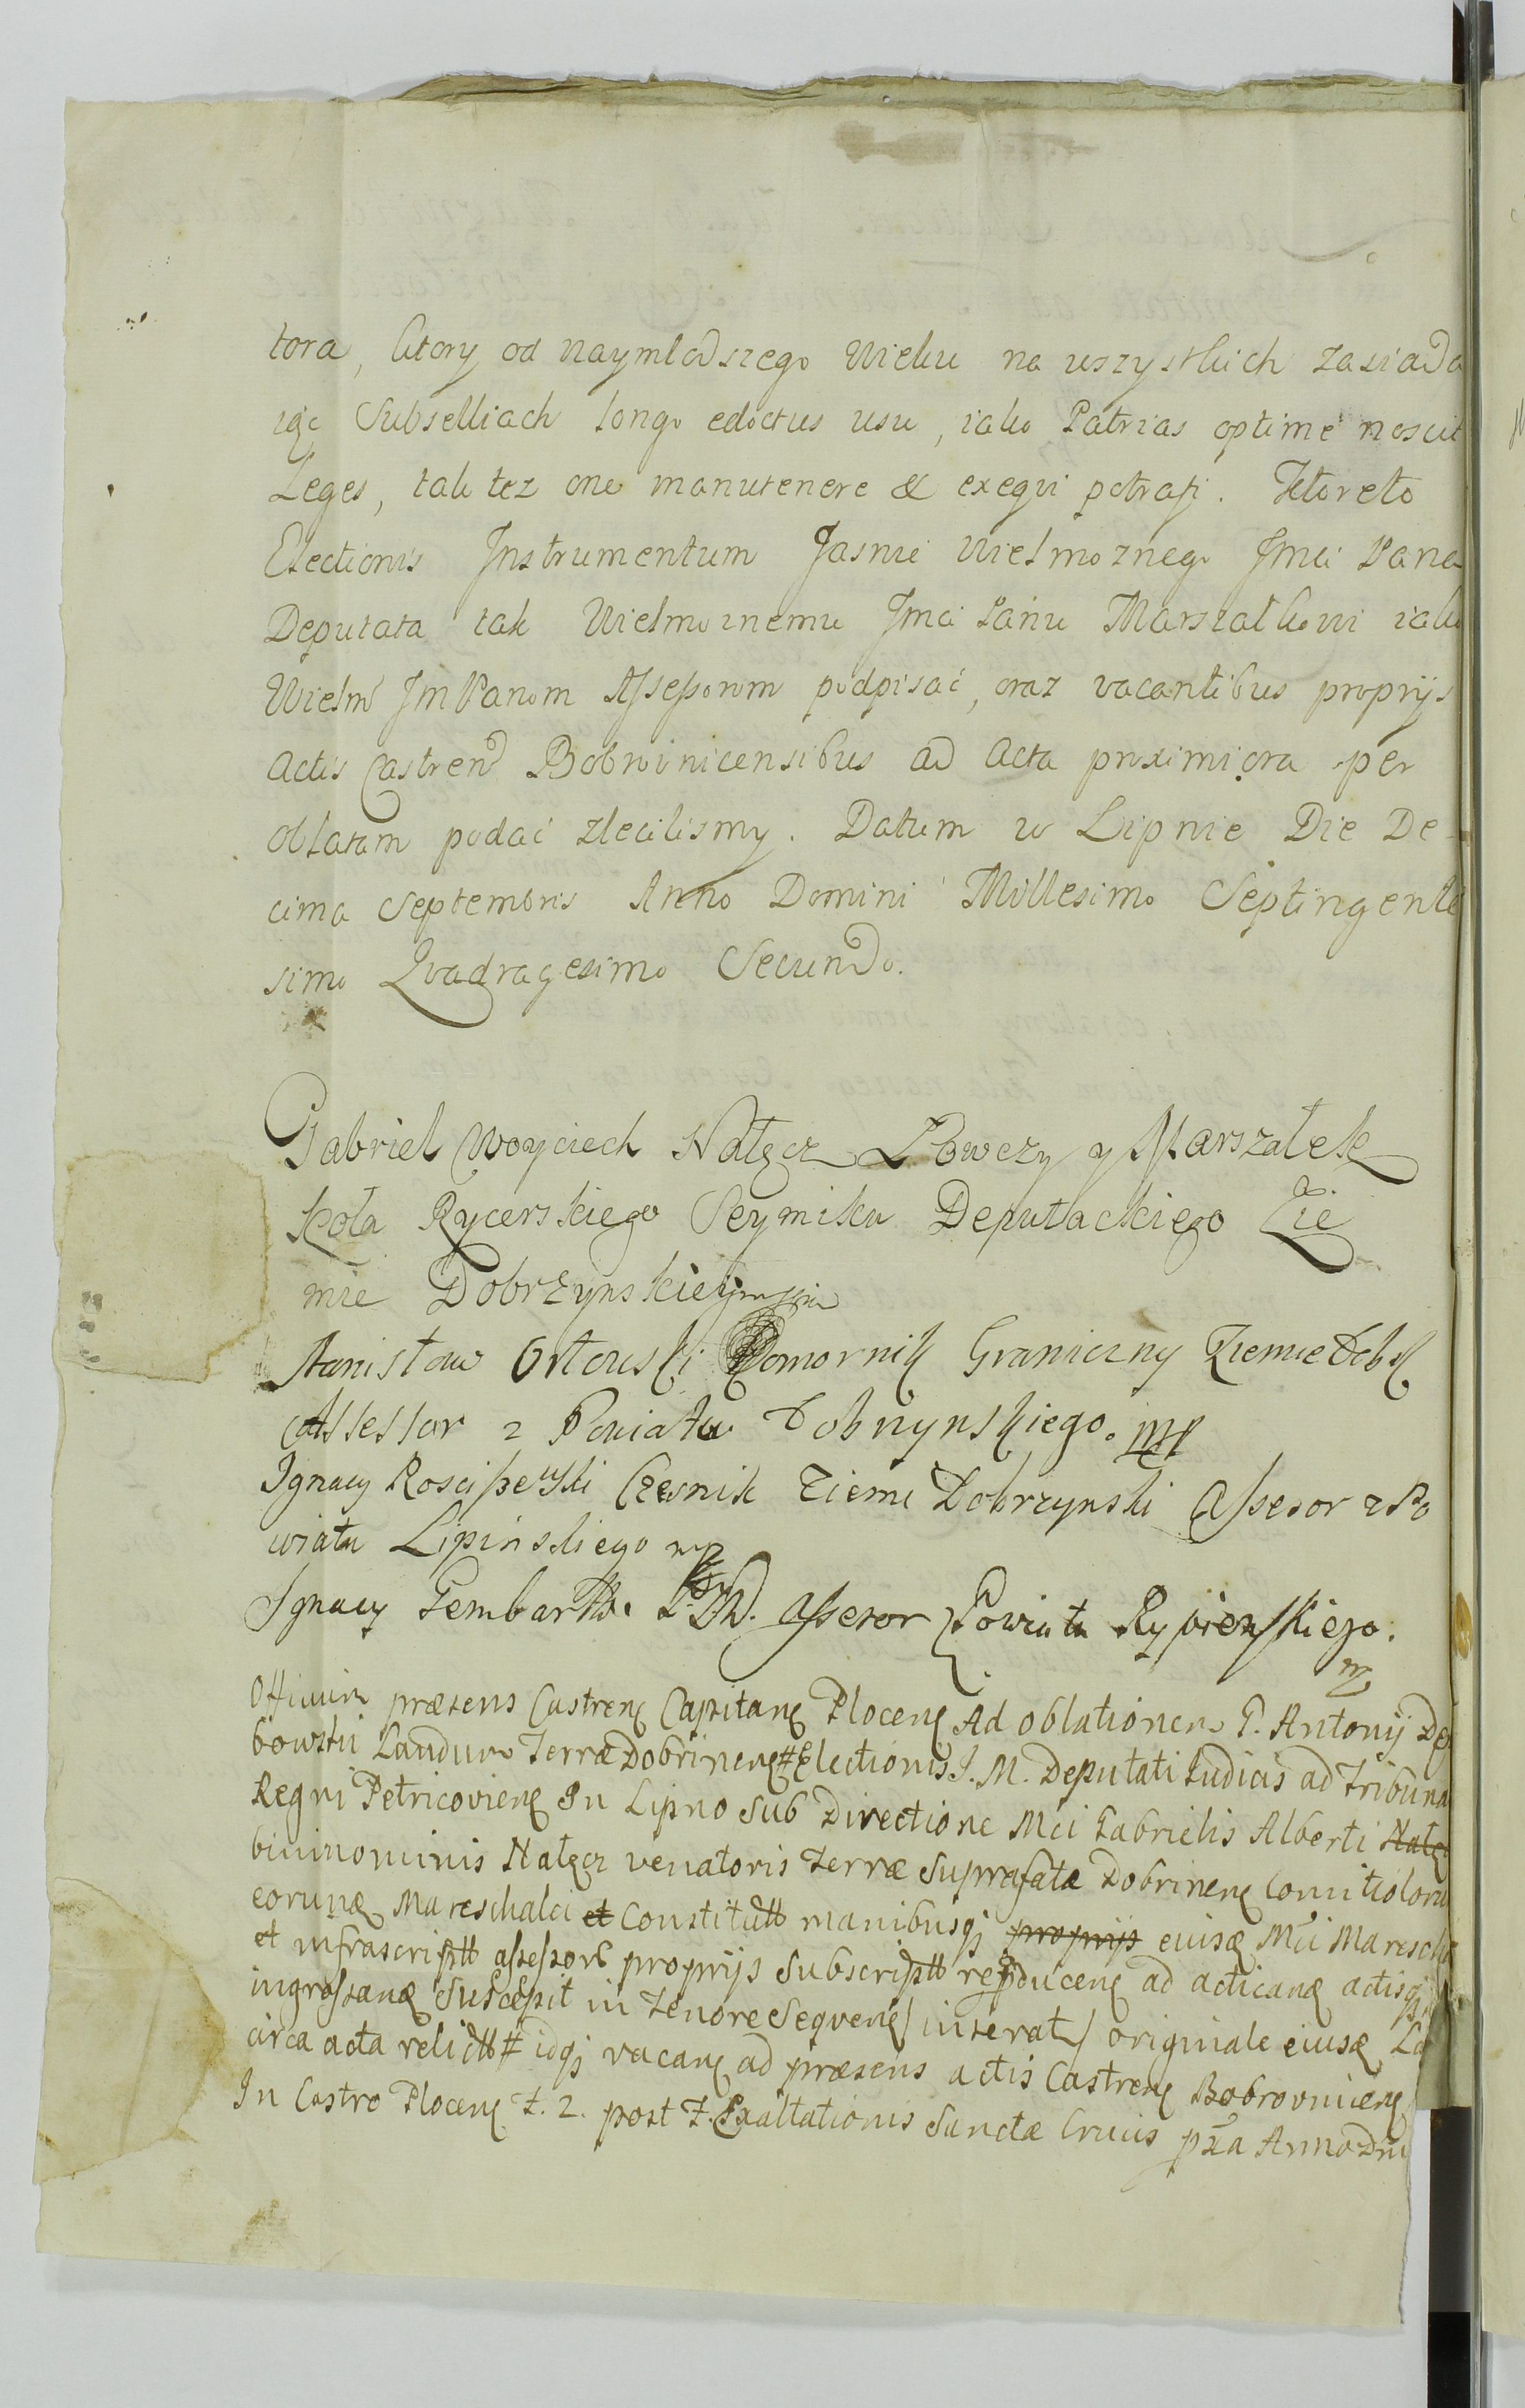 tora, ktory od naymłodszego wieku na wszystkich zasiada
iąc Subselliach longo edoctus usu, iako Patrias optime noscit
Leges, tak tez one manutenere & exequi potrafi. Ktoreto
Electionis Instrumentum Jasnie Wielmoznego Jmci Pana
Deputata tak Wielmoznemu Jmci Panu Marszałkowi iako
Wielm Jm Panom Assessorom podpisać, oraz vacantibus proprijs
Actis Castren Bobrovnicensibus ad Acta proximiora per
oblatam podać zleciliśmy. Datum w Lipnie Die De-
cima Septembris Anno Domini Millesimo Septingente
simo Qvadragesimo Secundo.
Gabriel Woyciech Nałęcz Łowczy y Marszałek
koła Rycerskiego Seymiku Deputackiego Zie
mie Dobrzynskiey
Stanisław Orłowski Komornik Graniczny Ziemie Dob
Assessor z Powiatu Dobrzynskiego. mp
Ignacy Rosciszewski Czesnik Ziemi Dobrzynski Assesor z Po
wiatu Lipińskiego mp
Ignacy Gembart Assesor Powiatu Rypienskiego.
mp
Officium præsens Castren Capitan Plocen Ad oblationem G. Antonij De
bowski Laudum Terræ Dobrinen # Electionis J. M. Deputati Judicis ad Tribuna
Regni Petricovien In Lipno sub Directione Mci Gabrielis Alberti Nałę
binominis Nałęcz venatoris Terræ Suprafatæ Dobrinen Comitiolorum
eorund Mareschalci et Constitutt manibusq proprijs eiusd Mci Maresch
et infrascriptt assessor proprijs Subscriptt reproducen ad acticand actisq
ingrossand Suscepit in Tenore Seqven inserat originale eiusd La
circa acta relictt # idq vacan ad præsens actis Castren Bobrovnicen
In Castro Plocen F. 2. post F. Exaltationis Sanctæ Crucis pxa Anno Dni